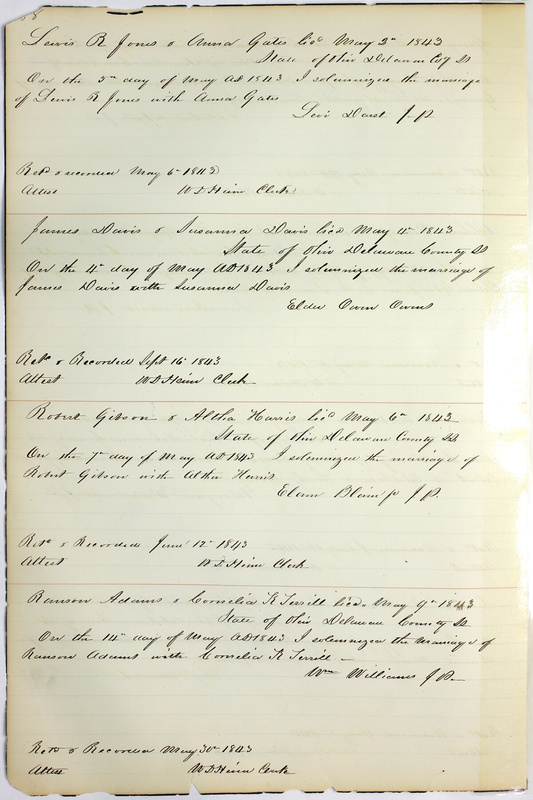 Lewis R Jones & Anna Gates licd May 3d 1843
State of Ohio Delaware Coty SS
On the 5th day of May AD 1843 I solemnized the marriage
of Lewis R Jones with Anna Gates
Levi Darst J.P.
Retd & recorded May 6th 1843
Attest W D Heim Clerk
James Davis & Susanna Davis licd May 4th 1843
State of Ohio Delaware County SS
On the 4th day of May AD 1843 I solemnized the marriage of
James Davis with Susanna Davis
Elder Owen Owens
Retd & Recorded Sept 16th 1843
Attest W D Heim Clerk
Robert Gibson & Altha Harris licd May 6th 1843
State of Ohio Delaware County SS
On the 7th day of May AD 1843 I solemnized the marriage of
Robert Gibson with Altha Harris
Blain jr J.P.
Retd & Recorded June 12th 1843
Attest W D Heim Clerk
Ranson Adams & Cornelia K Terrill licd May 9th 1843
State of Ohio Delaware County SS
On the 14th day of May AD 1843 I solemnized the marriage of
Ranson Adams with Cornelia K Terrill
Wm Williams J.P.
Retd & Recorded May 30th 1843
Attest W D Heim Clerk